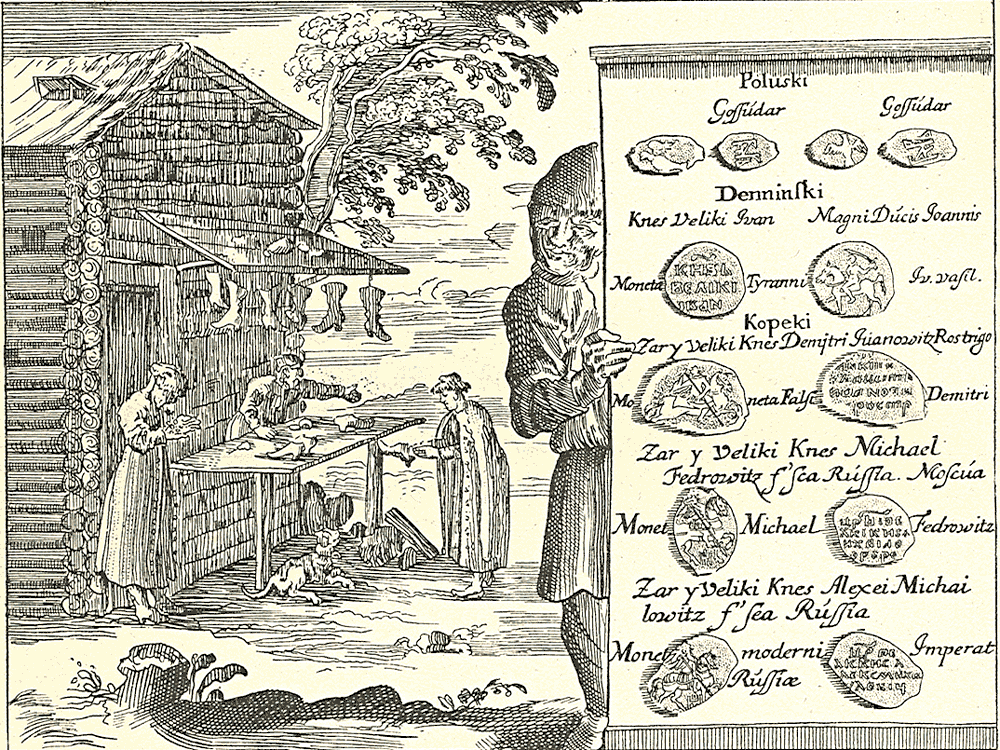 Poluski
Gossúdar Gossúdar
Denninski
Knes Veliki Ivan Magni Dúcis Joannis
Moneta КНЕЗЬ ВЕЛІКІ ІВАН Tyranni Iv. Vasil.
Kopeki
Zar y Veliki Knes Demÿtri Iúanowitz Rostrigo
Mo neta Fals Demitri
Zar y Veliki Knes Michael
Fedrowitz f'sea Rússia. Moscúa
Monet Michael Fedrowitz
Zar y Veliki Knes Alexei Michai
lowitz f'sea Rússia
Monet moderni Imperat
Rússiæ